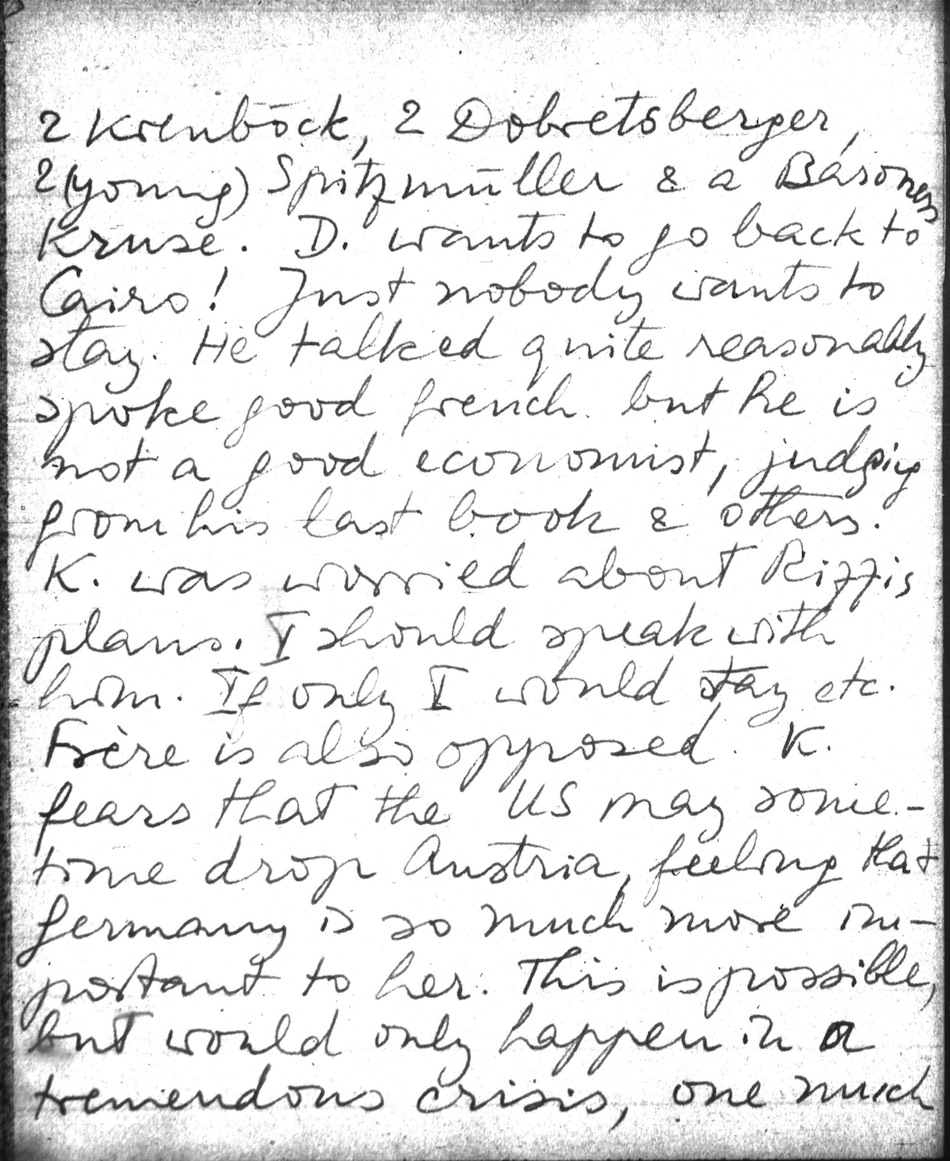 2 Krenböck, 2 Dobretsberger,
2 (young) Spitzmüller & a Baroness
Kruse. D. wants to go back to
Cairo! Just nobody wants to
stay. He talked quite reasonably
spoke good french. but he is
not a good economist, judging
from his last book & others.
K. was worried about Rizzis
plans. I should speak with
him. If only I would stay etc.
Frère is also opposed. K.
fears that the US may some-
time drop Austria, feeling that
Germany is so much more im-
portant to her. This is possible,
but would only happen in a
tremendous crisis, one much